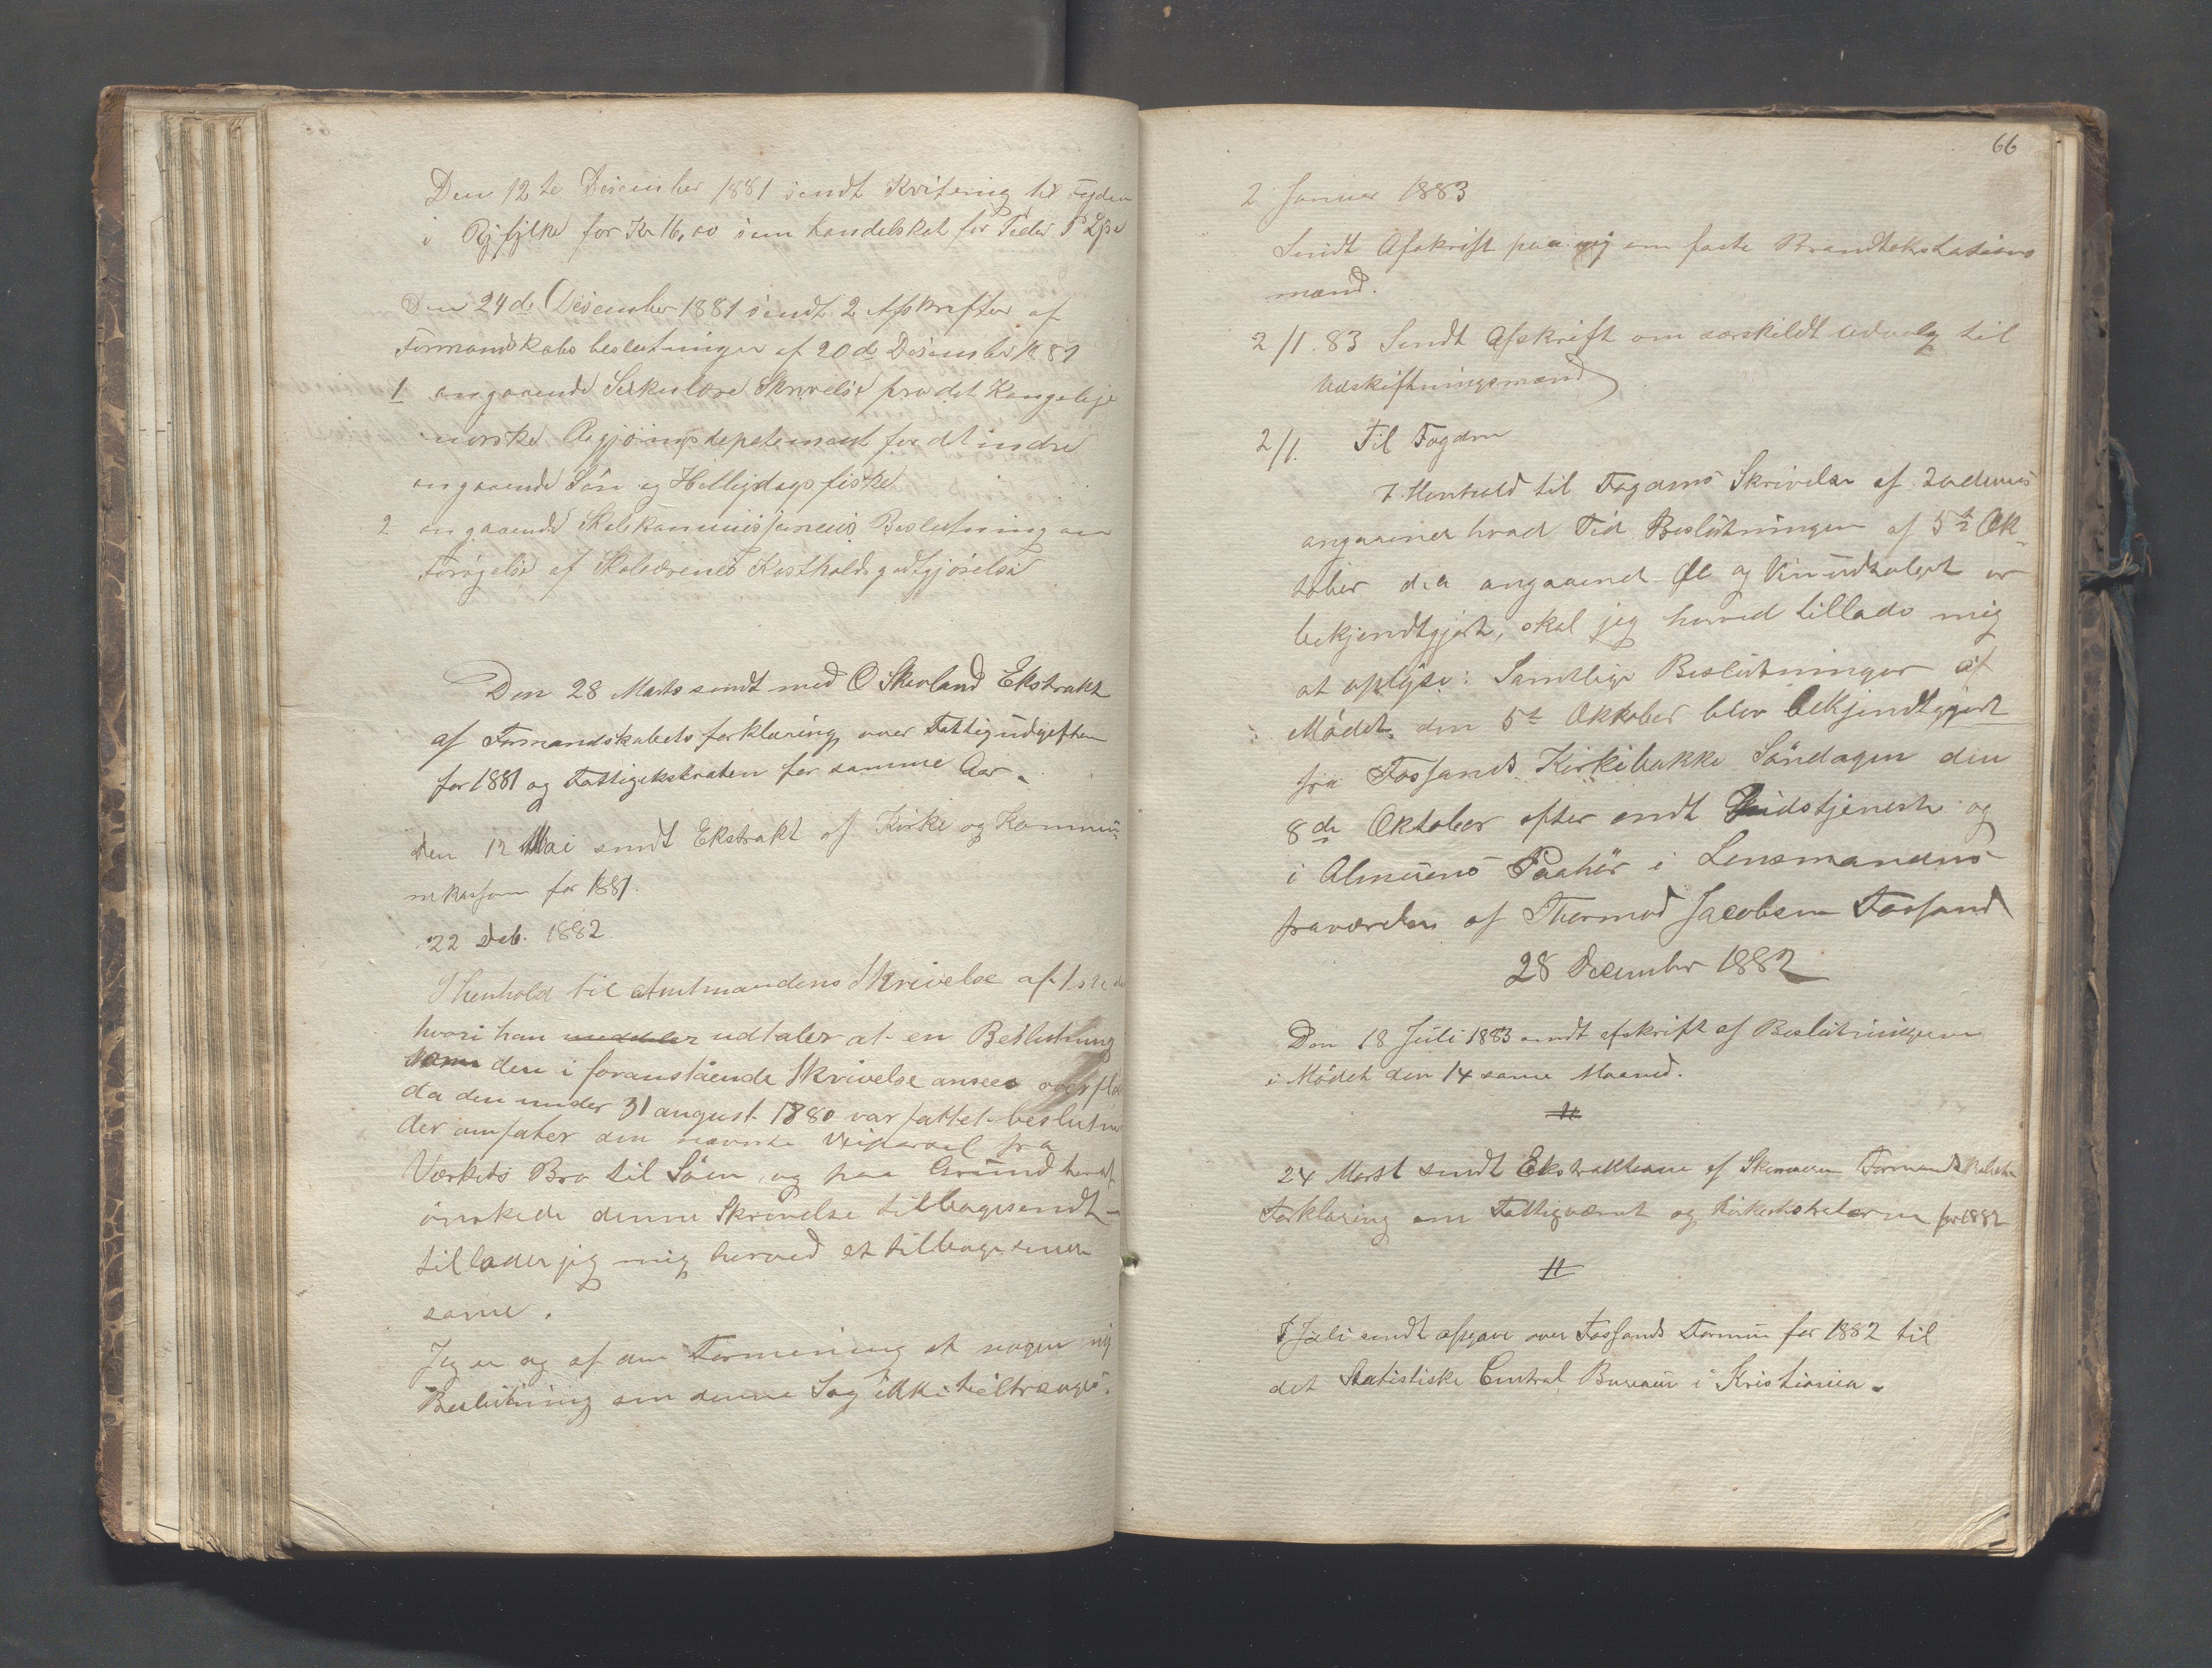 Den 12te Desember 1881 sendt Kvitering til Fogden
i Ryfylke for Kr 16,00 som handelskat for Peder P
Den 24de Desember 1881 sendt 2 Afskrifter af
Formandskabs beslutninger af 20de Desember 1881
1 angaaende Sirkulære Skrivelse fra det Kongelige
norske Regjørings depatement for det indre
angaaende Søn og Helligdags fiske
2 angaaende Skolekommisjonens Beslutning om
Forøgelse af Skolelærenes Kostholds godtgjørelse
Den 28 Marts sendt med O Skevland Ekstrakt
af Formandskabets forklaring over Fattigudgiften
for 1881 og Fattigekstrakten for samme Aar.
Den 12 Mai sendt Ekstrakt af Kirke og Kommu-
nekassen for 1881.
22 Deb. 1882.
I henhold til Amtmandens Skrivelse af 1ste
hvori han meddeler udtaler at en Beslutning
som den i foranstående Skrivelse ansees overflø
da den under 31 august 1880 var fattet beslutni
der omfater den nævnte Veiparsel fra
Værkets Bro til Söen, og paa Grund heraf
önskede denne Skrivelse tilbagesendt –
tillader jeg mig herved at tilbagesende
same.
Jeg er og af den Formening at nogen ny
Beslutning om denne Sag ikke tiltrænges.
66
2 Januar 1883
Sendt Afskrift paa ny om faste Brandtakstations
mænd.
2/1. 83 Sendt Afskrift om særskildt Udvalg til
Udskiftningsmænd
2/1. Til Fogden
I Henhold til Fogdens Skrivelse af 20 dennes
angaaende hvad Tid Beslutningen af 5te Ok-
tober d.a angaaende Øl og Vinudsalget er
bekjendtgjort, skal jeg herved tillade mig
at oplyse: Samtlige Beslutninger af
Mødet den 5te Oktober blev bekjendtgjort
fra Fossands Kirkebakke Söndagen den
8de Oktober efter endt Gudstjeneste og
i Almuens Paahör i Lensmandens
fraværelse af Thormod Jacobsen Fossand
28 December 1882
Den 18 Juli 1883 sendt afskrift af Beslutningerne
i Mödet den 14 same Maaned.
//
24 Marst sendt Ekstrakterne af Formandskabets
Forklaring om Fattigvæsnet og Kirkeekstrakterne for 1882
//
7 Juli sendt opgave over Fossands Formue for 1882 til
det Statistiske Central Bureau i Kristiania.